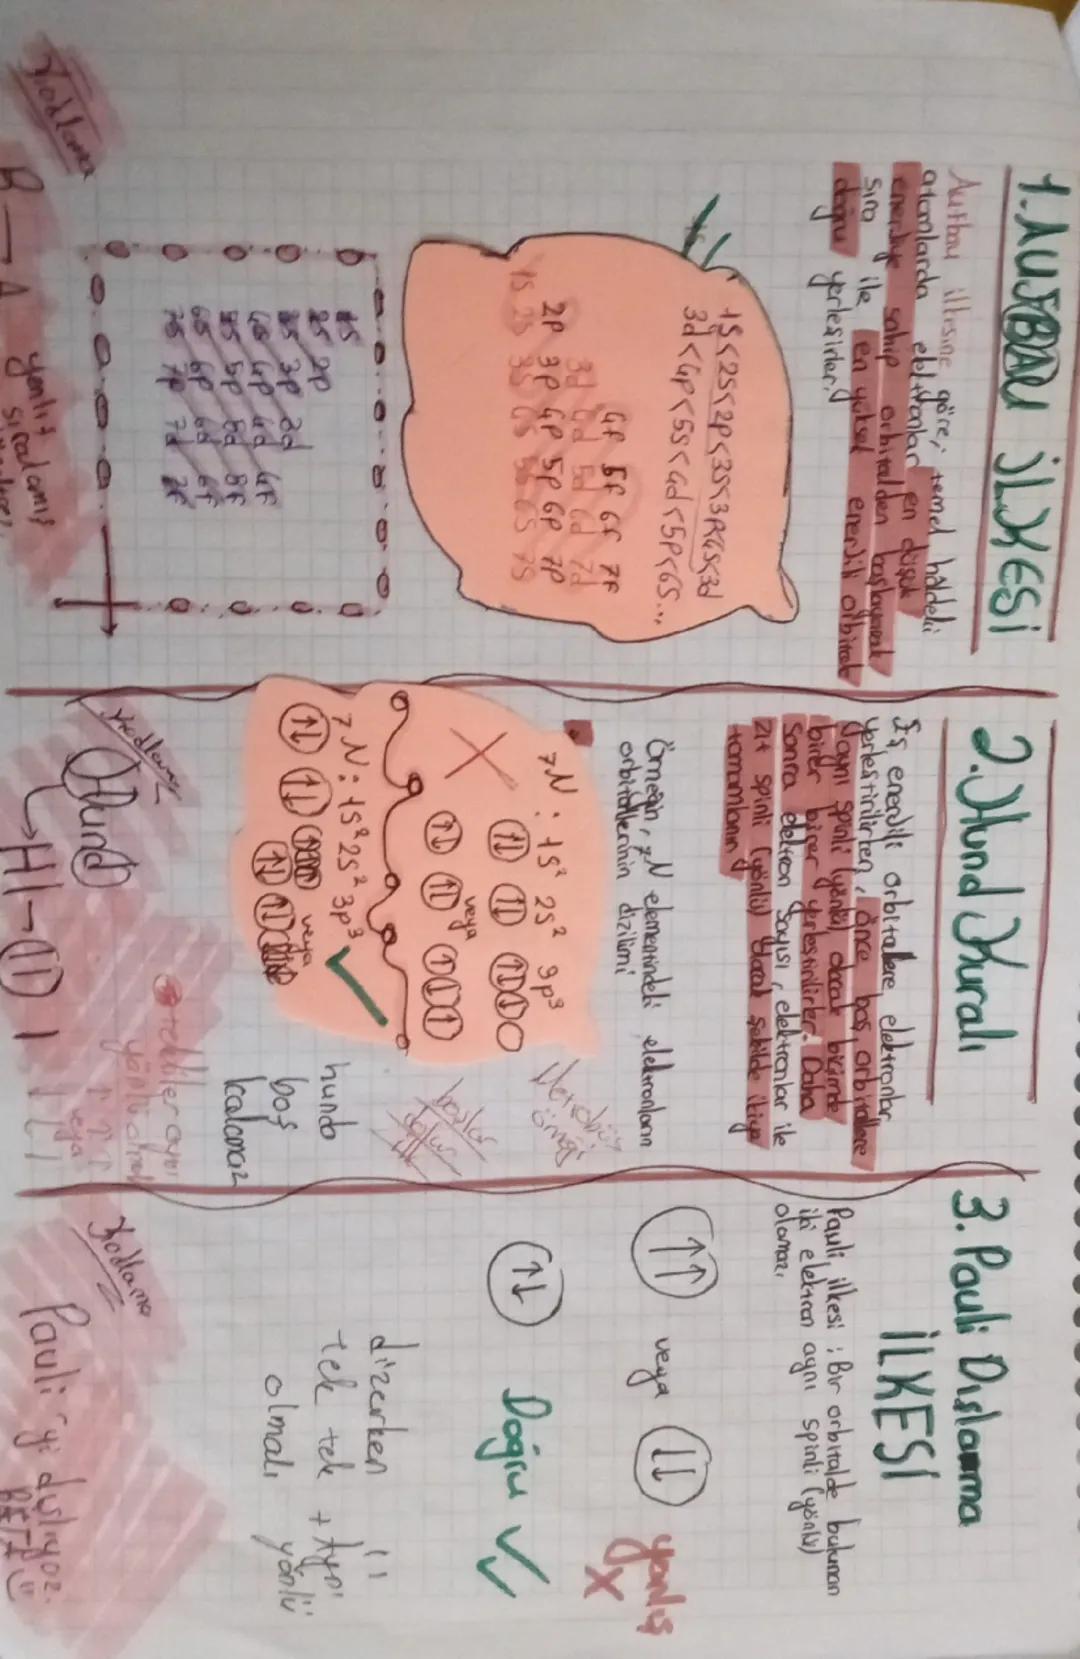 1. AUFBAU İLKESİ
Aufbau ilkesine göre; temel haldeki
atomlarda elektronlar en düşük
enerjiye sahip orbitalden başlayarak
sıra ile en yüksek enerjili orbitale
doğru yerleşirler.
1s<2s<2p<3s<3p<4s<3d
3d<4p<5s<4d<5p<6s...
4f 5f 6f 7f
3d 4d 5d 6d 7d
2p 3p 4p 5p 6p 7p
1s 2s 3s 4s 5s 6s 7s
1s
2s 2p
3s 3p 3d
4s 4p 4d 4f
5s 5p 5d 5f
6s 6p 6d 6f
7s 7p 7d 7f
Kodlama
A yenlit
sıralamış
2. Hund Kuralı
Eş enerjili orbitallere, elektronlar
yerleştirilirken, önce boş orbitallere
aynı spinli (yönlü) olacak biçimde
birer birer yerleştirilirler. Daha
sonra elektron sayısı, elektronlar ile
zıt spinli (yönlü) olacak şekilde ikiye
tamamlanır
Örneğin, 7N elementindeki elektronların
orbitallerinin dizilimi
7N: 1s² 2s² 3p³
↑↓ ↑↓ ↑↓
veya
↑↓ ↑↓ ↑↓↑
7N: 1s² 2s² 3p³
↑↓ ↑↓
veya
↑↓ ↑↓
örneği
boşlar
dolur
hundo
boş
kalamaz
tekliler aynı
yönlü olmalı
veya
Kodlama
Hund
H1→↑↓ 1
3. Pauli Dışlama
İLKESİ
Pauli ilkesi; Bir orbitalde bulunan
iki elektron aynı spinli (yönlü)
olamaz.
↑↑ veya ↓↓ yanlış X
↑↓ Doğru
dizerken
tek tek + Aynı
olmalı yönlü
Kodlama
Pauli'yi dışlıyoz.